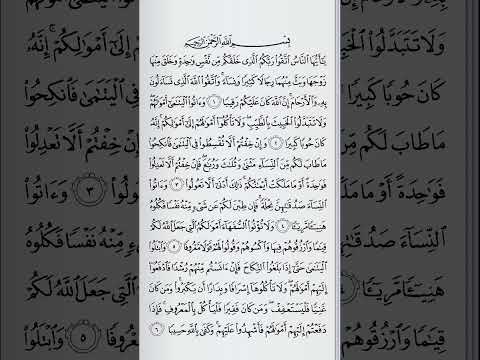 بِسْمِ ٱللَّهِ ٱلرَّحْمَٰنِ ٱلرَّحِيمِ
يَٰٓأَيُّهَا ٱلنَّاسُ ٱتَّقُوا۟ رَبَّكُمُ ٱلَّذِى خَلَقَكُم مِّن نَّفْسٍ وَٰحِدَةٍ وَخَلَقَ مِنْهَا
زَوْجَهَا وَبَثَّ مِنْهُمَا رِجَالًا كَثِيرًا وَنِسَآءً ۚ وَٱتَّقُوا۟ ٱللَّهَ ٱلَّذِى تَسَآءَلُونَ
بِهِۦ وَٱلْأَرْحَامَ ۚ إِنَّ ٱللَّهَ كَانَ عَلَيْكُمْ رَقِيبًا ١ وَءَاتُوا۟ ٱلْيَتَٰمَىٰٓ أَمْوَٰلَهُمْ
وَلَا تَتَبَدَّلُوا۟ ٱلْخَبِيثَ بِٱلطَّيِّبِ ۖ وَلَا تَأْكُلُوٓا۟ أَمْوَٰلَهُمْ إِلَىٰٓ أَمْوَٰلِكُمْ ۚ إِنَّهُۥ
كَانَ حُوبًا كَبِيرًا ٢ وَإِنْ خِفْتُمْ أَلَّا تُقْسِطُوا۟ فِى ٱلْيَتَٰمَىٰ فَٱنكِحُوا۟
مَا طَابَ لَكُم مِّنَ ٱلنِّسَآءِ مَثْنَىٰ وَثُلَٰثَ وَرُبَٰعَ ۖ فَإِنْ خِفْتُمْ أَلَّا تَعْدِلُوا۟
فَوَٰحِدَةً أَوْ مَا مَلَكَتْ أَيْمَٰنُكُمْ ۚ ذَٰلِكَ أَدْنَىٰٓ أَلَّا تَعُولُوا۟ ٣ وَءَاتُوا۟
ٱلنِّسَآءَ صَدُقَٰتِهِنَّ نِحْلَةً ۚ فَإِن طِبْنَ لَكُمْ عَن شَىْءٍ مِّنْهُ نَفْسًا فَكُلُوهُ
هَنِيٓـًٔا مَّرِيٓـًٔا ٤ وَلَا تُؤْتُوا۟ ٱلسُّفَهَآءَ أَمْوَٰلَكُمُ ٱلَّتِى جَعَلَ ٱللَّهُ لَكُمْ
قِيَٰمًا وَٱرْزُقُوهُمْ فِيهَا وَٱكْسُوهُمْ وَقُولُوا۟ لَهُمْ قَوْلًا مَّعْرُوفًا ٥ وَٱبْتَلُوا۟
ٱلْيَتَٰمَىٰ حَتَّىٰٓ إِذَا بَلَغُوا۟ ٱلنِّكَاحَ فَإِنْ ءَانَسْتُم مِّنْهُمْ رُشْدًا فَٱدْفَعُوٓا۟
إِلَيْهِمْ أَمْوَٰلَهُمْ ۖ وَلَا تَأْكُلُوهَآ إِسْرَافًا وَبِدَارًا أَن يَكْبَرُوا۟ ۚ وَمَن كَانَ
غَنِيًّا فَلْيَسْتَعْفِفْ ۖ وَمَن كَانَ فَقِيرًا فَلْيَأْكُلْ بِٱلْمَعْرُوفِ ۚ فَإِذَا
دَفَعْتُمْ إِلَيْهِمْ أَمْوَٰلَهُمْ فَأَشْهِدُوا۟ عَلَيْهِمْ ۚ وَكَفَىٰ بِٱللَّهِ حَسِيبًا ٦